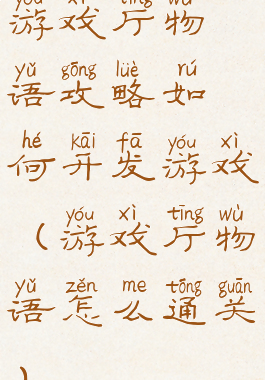 yóu xì tīng wù
游戏厅物
yǔ gōng lüè rú
语攻略如
hé kāi fā yóu xì
何开发游戏
yóu xì tīng wù
（游戏厅物
yǔ zěn me tōng guān
语怎么通关
）